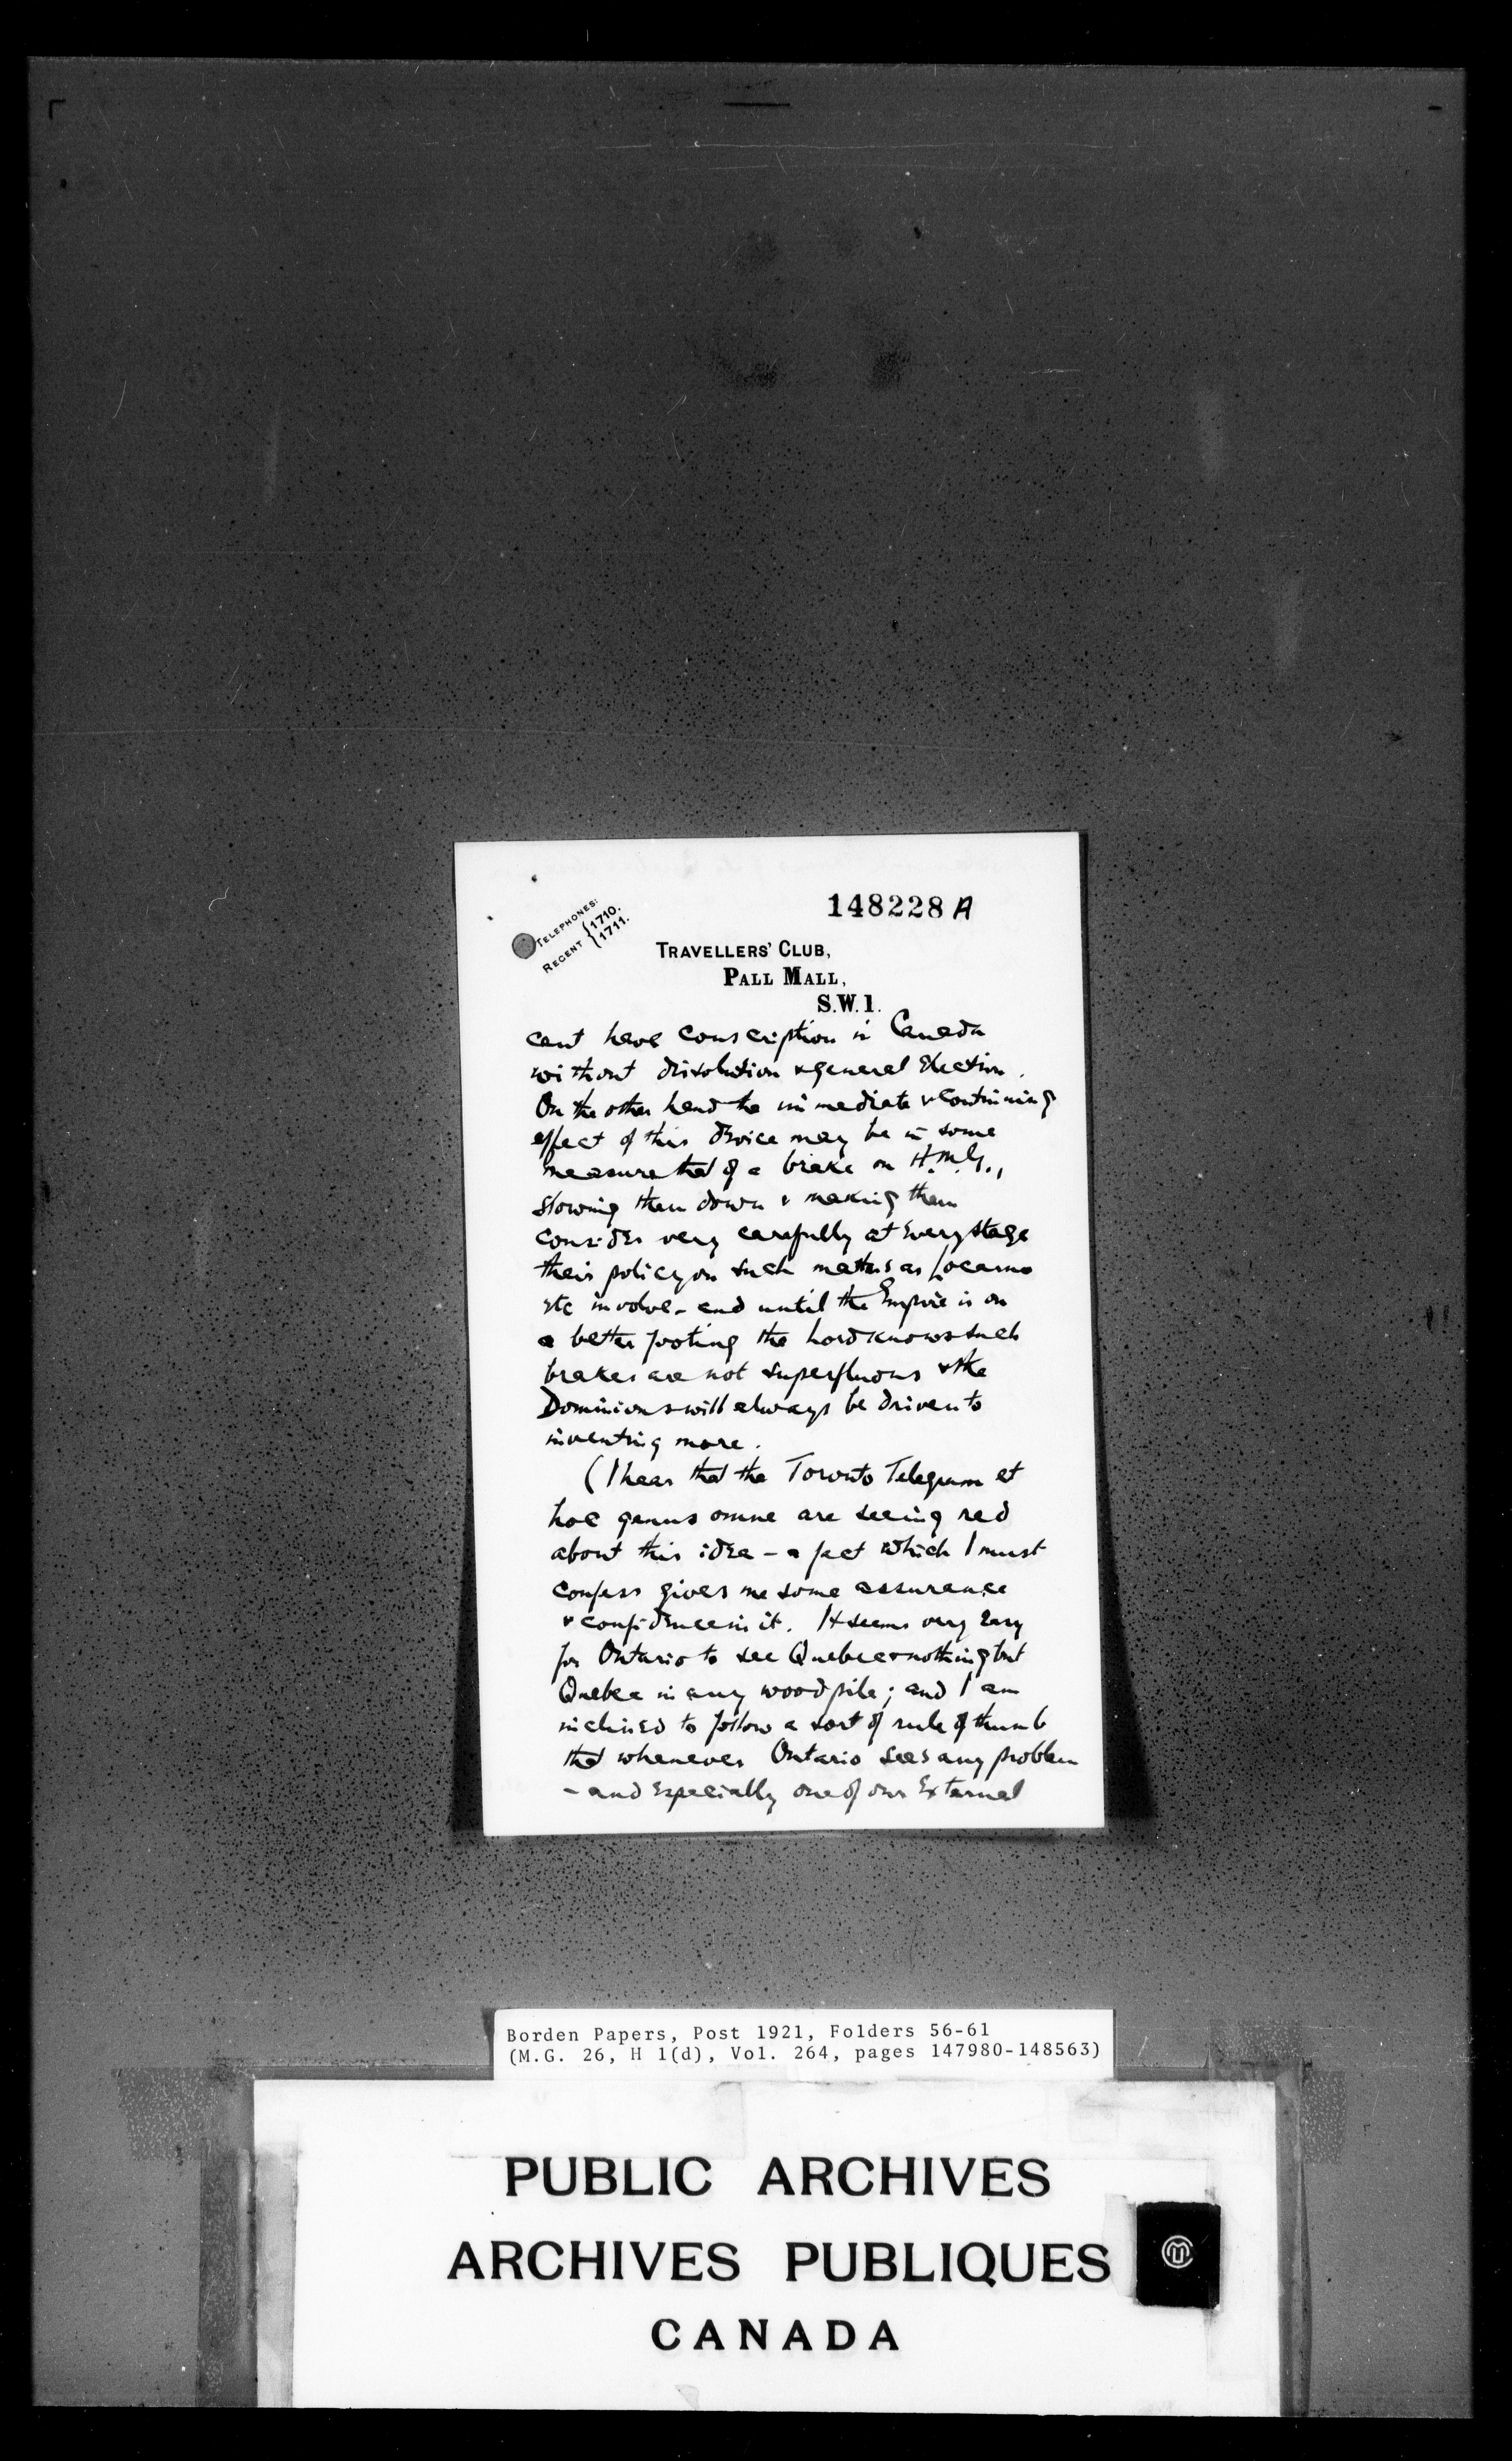 148228 A
TELEPHONES:
REGENT { 1710.
1711.
TRAVELLERS' CLUB,
PALL MALL,
S.W.1.
cant have conscription in Canada
without dissolution & general Election.
On the other hand the immediate & continuing
effect of this device may be in some
measure that of a brake on H.M.G.,
slowing them down & making them
consider very carefully at every stage
their policy on such matters as Locarno
etc involve - and until the Empire is on
a better footing the Lord knows such
brakes are not superfluous & the
Dominions will always be driven to
inventing more.
(I hear that the Toronto Telegram et
hoc genus omne are seeing red
about this idea - a fact which I must
confess gives me some assurance
& confidence in it. It seems very easy
for Ontario to see Quebec & nothing but
Quebec in any woodpile; and I am
inclined to follow a sort of rule of thumb
that whenever Ontario sees any problem
- and especially one of our External
Borden Papers, Post 1921, Folders 56-61
(M.G. 26, H 1(d), Vol. 264, pages 147980-148563)
PUBLIC ARCHIVES
ARCHIVES PUBLIQUES
CANADA